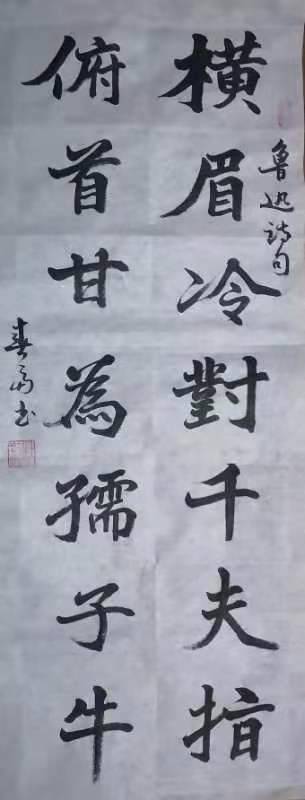 橫眉冷對千夫指
俯首甘為孺子牛
魯迅詩句
書